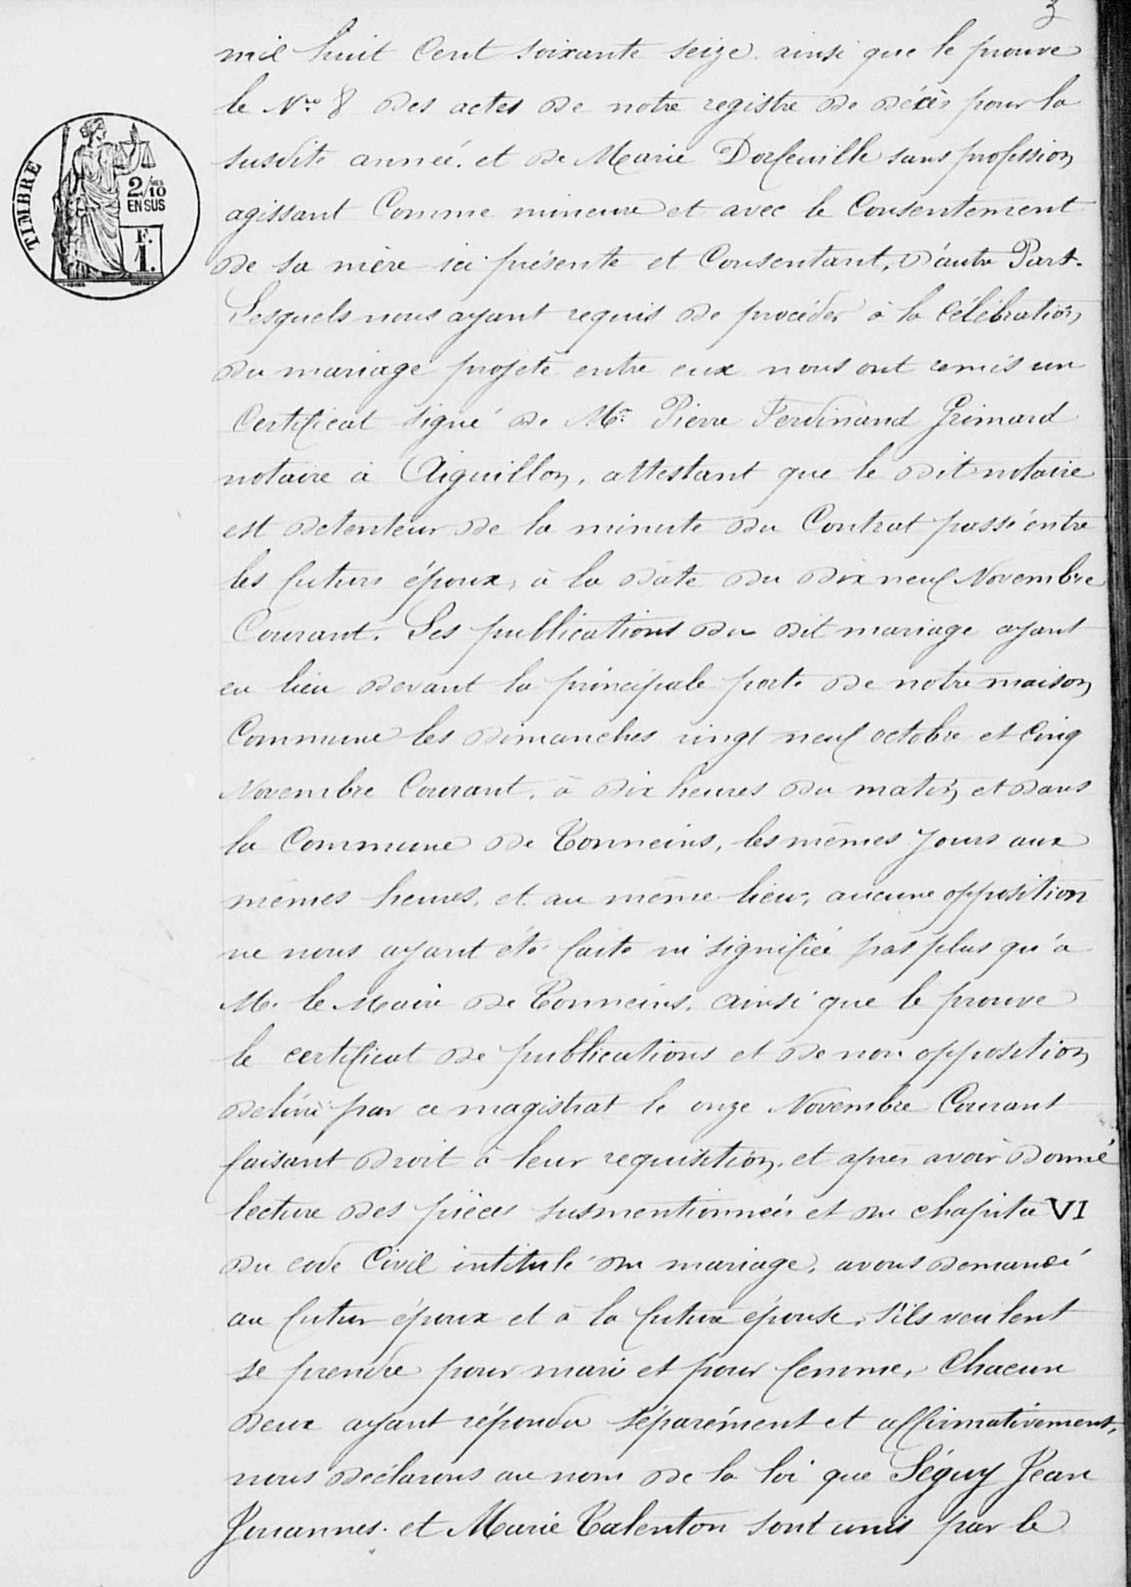 3
mil huit Cent soixante seize ainsi que le prouve
le Nro 8 des actes de notre registre de décès pour la
susdite année. et de Marie Dorfeuille sans profession
agissant Comme mineure et avec le Consentement
de sa mère ici présente et Consentant, d'autre Part.
Lesquels nous ayant requis de procéder à la célébration
du mariage projeté entre eux nous ont remis un
Certificat signé de Mr Pierre Ferdinand Grimard
notaire à Aiguillon, attestant que le dit notaire
est detenteur de la minute du Contrat passé entre
les futurs époux, à la date du dix neuf Novembre
Courant. Les publications du dit mariage ayant
eu lieu devant la principale porte de notre maison
Commune les dimanches vingt neuf octobre et Cinq
Novembre Courant, à dix heures du matin, et dans
la Commune de Tonneins, les mêmes Jours aux
mêmes heures, et au même lieu, aucune opposition
ne nous ayant été faite ni signifiée pas plus qu'a
M. le Maire de Tonneins, ainsi que le prouve
le certificat de publications et de non opposition
delivré par ce magistrat le onze Novembre Courant
faisant droit à leur requisition, et après avoir donné
lecture des pièces susmentionnées et du chapitre VI
du code Civil intitulé du mariage, avons demandé
au futur époux et à la future épouse, s'ils veulent
se prendre pour mari et pour femme, Chacun
deux ayant répondu séparément et affirmativement,
nous déclarons au nom de la loi que Séguy Jean
Jouannes. et Marie Talenton sont unis par le
TIMBRE
2/10
EN SUS
F.
1.